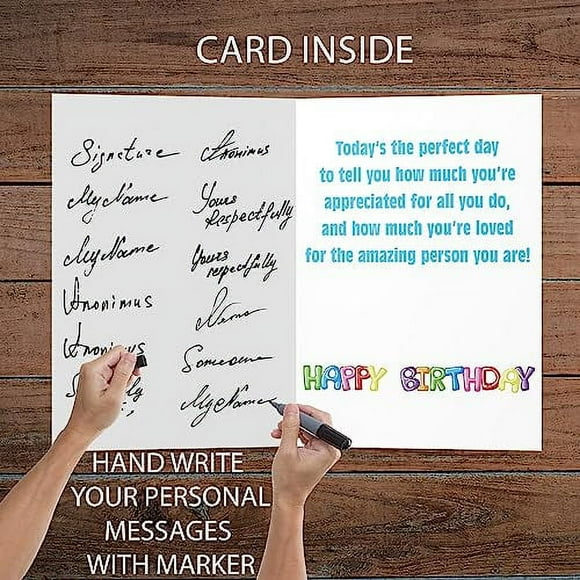 CARD INSIDE
Signature
Anonimus
My Name
Yours
Respectfully
My Name
Yours
respectfully
Anonimus
Nemo
Anonimus
Someone
My Name
Today's the perfect day
to tell you how much you're
appreciated for all you do,
and how much you're loved
for the amazing person you are!
HAPPY BIRTHDAY
HAND WRITE
YOUR PERSONAL
MESSAGES
WITH MARKER